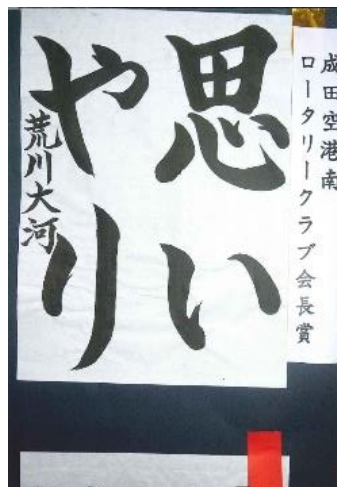 成田空港南
ロータリークラブ会長賞
思い
やり
荒川大河